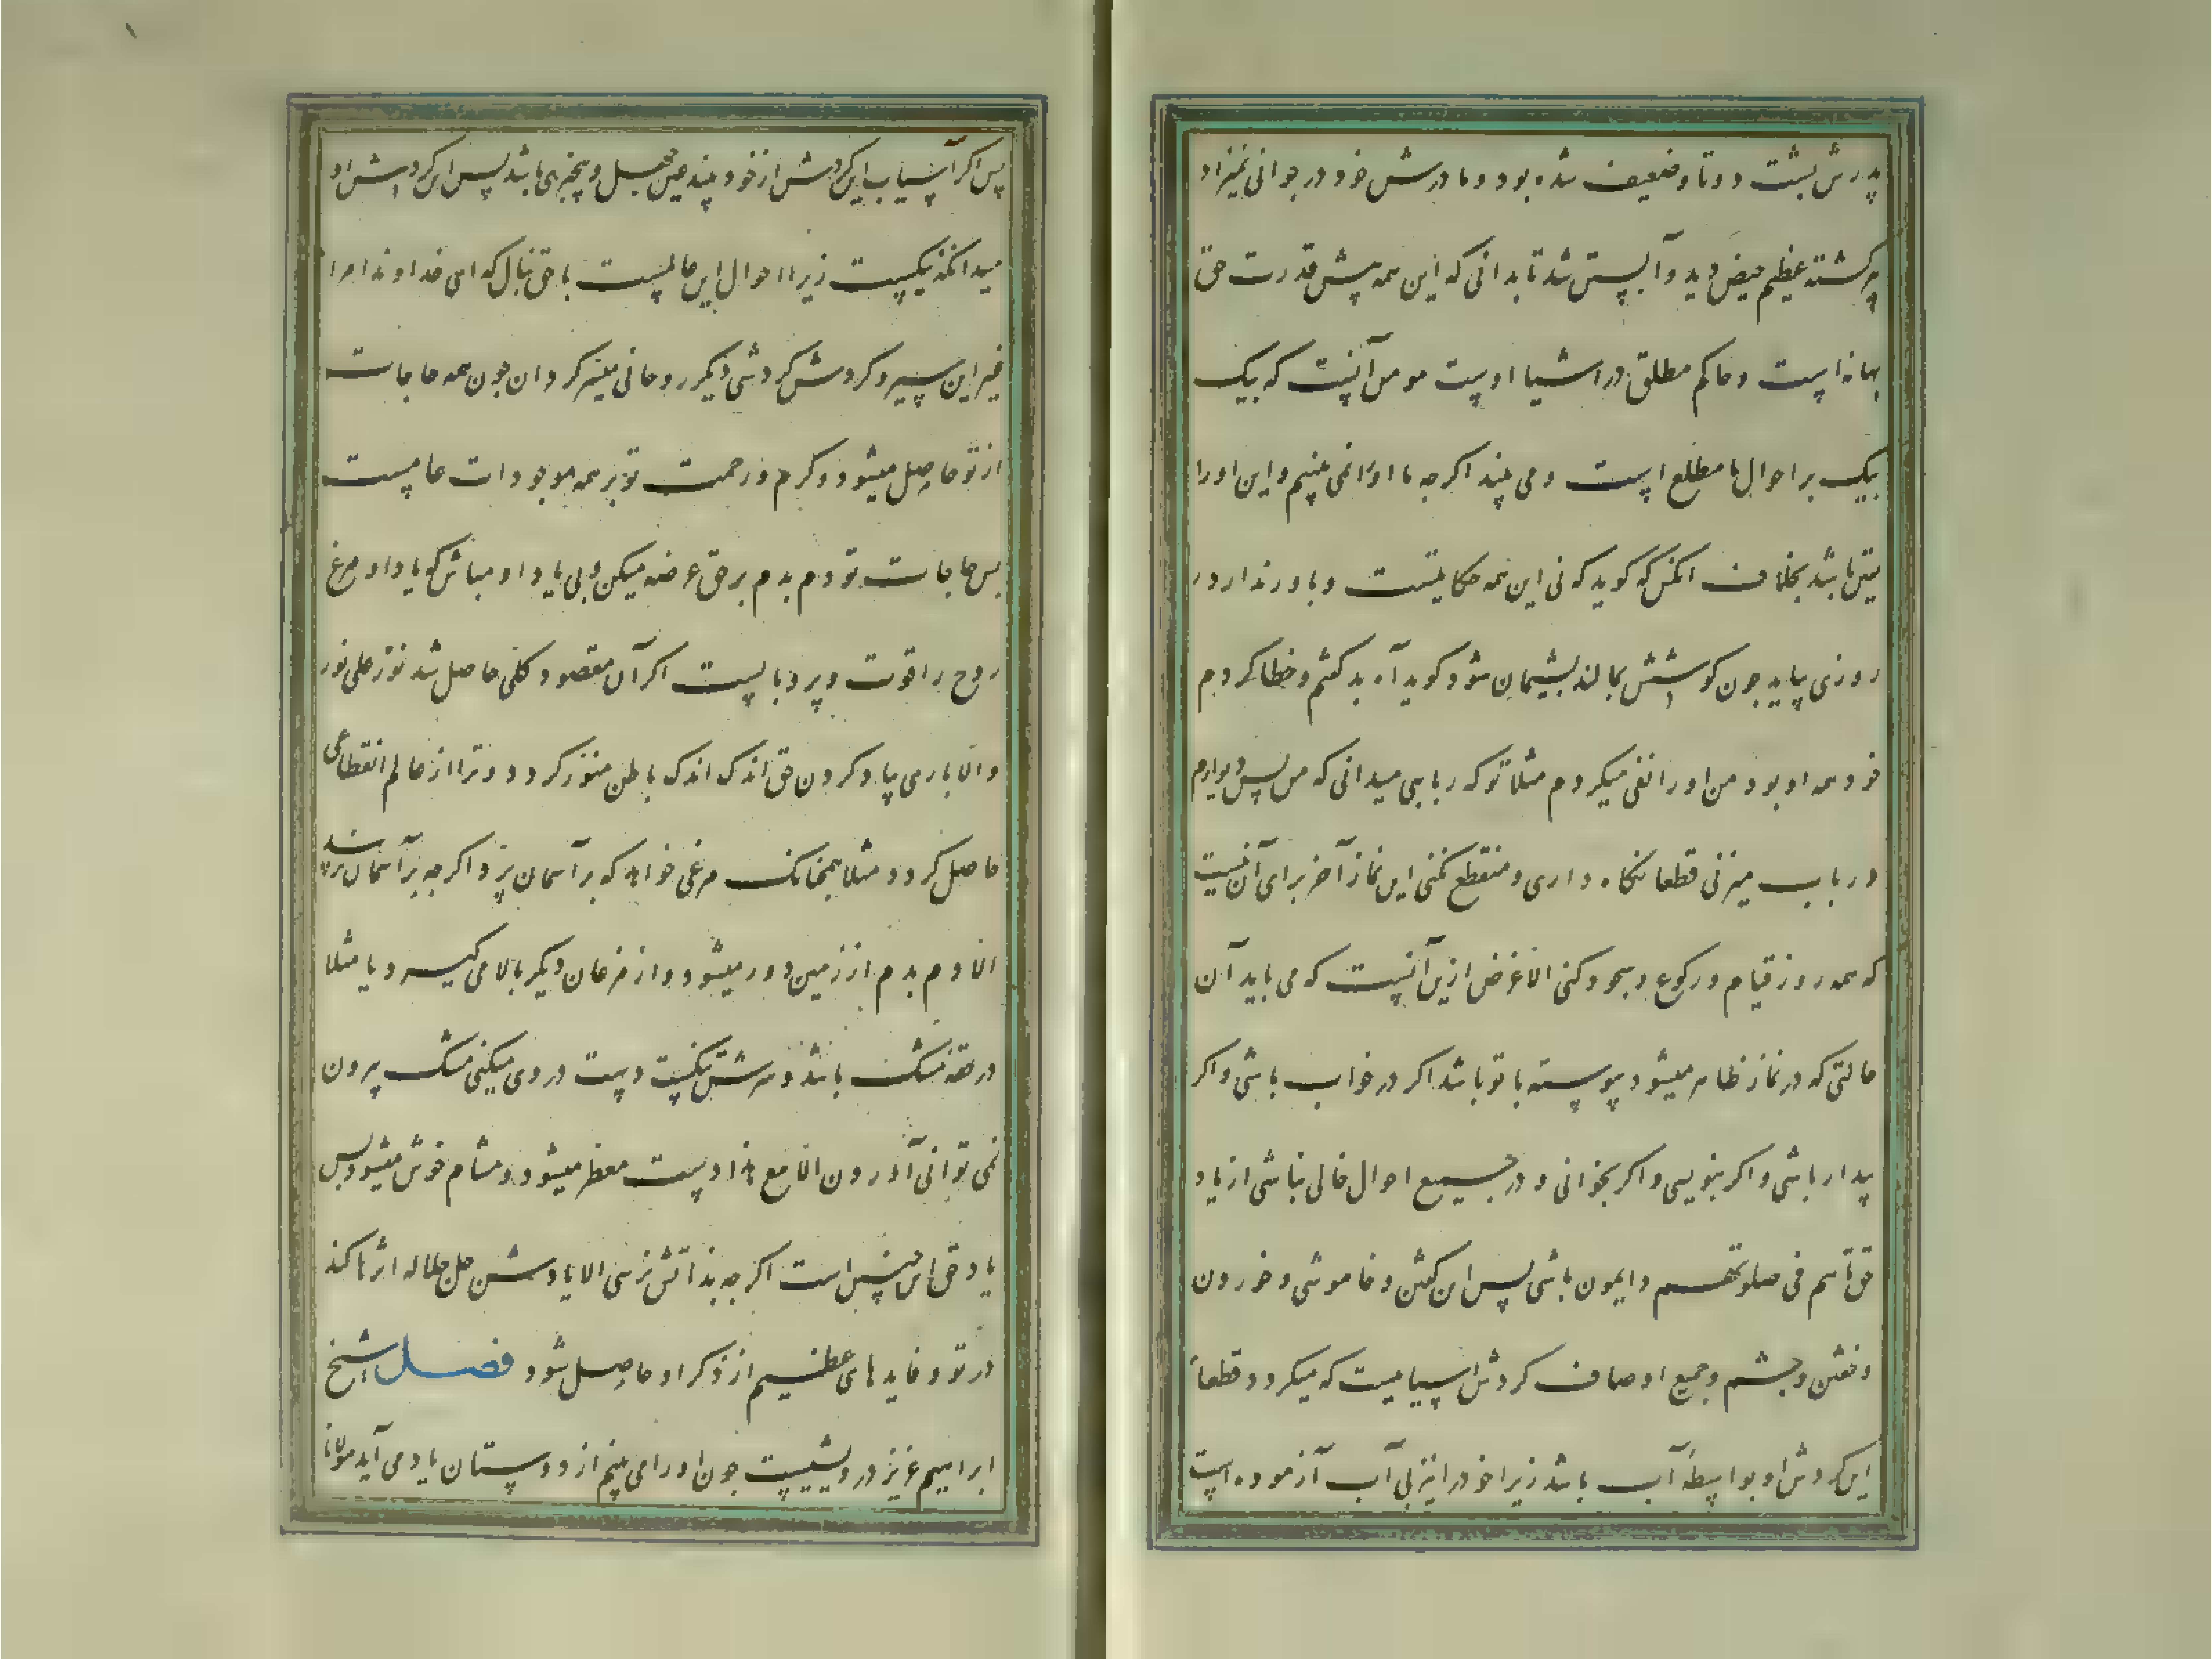 پدرش پشت دوتا و ضعیف شده بود و مادرش خود در جوانی نمیزاد
پیر کشته عظیم حیض دید و آبستن شد تا بدانی که این همه پیش قدرت حق
بهانه است و حاکم مطلق در اشیا اوست مومن آنست که بیک
بیک بر احوال ما مطلع است و می بیند اکرچه ما او را نمی بینیم و این او را
یقین باشد بخلاف انکس که کوید که نی این همه حکایتست و باور ندارد
روزی بیاید چون کوشش بمالند پشیمان شود کوید آه بد کفتم و خطا کردم
خود همه او بود من او را نفی میکردم مثلا تو که ربابی میدانی که من پس دیوارم
و رباب میزنی قطعا نکاه داری و منقطع نکنی این نماز آخر برای آن نیست
که همه روز قیام و رکوع و سجود کنی الا غرض ازین آنست که می باید آن
حالتی که در نماز ظاهر میشود پیوسته با تو باشد اکر در خواب باشی و اکر
بیدار باشی و اکر بنویسی و اکر بخوانی و در جمیع احوال خالی نباشی از یاد
حق تا هم فی صلوتهم دایمون باشی پس این کفتن و خاموشی و خوردن
و خفتن و خشم و جمیع اوصاف کردش آسیابست که میکردد قطعاً
این کردش او بواسطهٔ آب باشد زیرا خود را نیز بی آب آزموده است
پس اکر آسیاب این کردش از خود بیند عین جهل و بیخبری باشد پس این کردش او
میدانکه نیکیست زیرا احوال این عالمست با حق بنال که ای خداوندا مرا
غیر این سیر و کردش کردشی دیکر روحانی میسر کردان چون همه حاجات
از تو حاصل میشود و کرم و رحمت تو بر همه موجودات عامست
پس حاجات تو دم بدم بر حق عرضه میکن و بی یاد او مباش که یاد او مرغ
روح را قوت و پر و بالست اکر آن مقصود کلی حاصل شد نور علی نور
و الا باری بیاد کردن حق اندک اندک باطن منور کردد و ترا از عالم انقطاعی
حاصل کردد مثلا همچنانک مرغی خواهد که بر آسمان پرد اکرچه بر آسمان نرسد
الا دم بدم از زمین دور میشود و از مرغان دیکر بالا می کیرد یا مثلا
در حقه مشک باشد و سرش تنکست دست در وی میکنی مشک بیرون
نمی توانی آوردن الا مع هذا دست معطر میشود و مشام خوش میشود پس
یاد حق این چنین است اکرچه بذاتش نرسی الا یادش جل جلاله اثرها کند
در تو و فایدهای عظیم از ذکر او حاصل شود فصل شیخ
ابراهیم عزیز درویشیست چون او را می بینم از دوستان یاد می آید مولانا